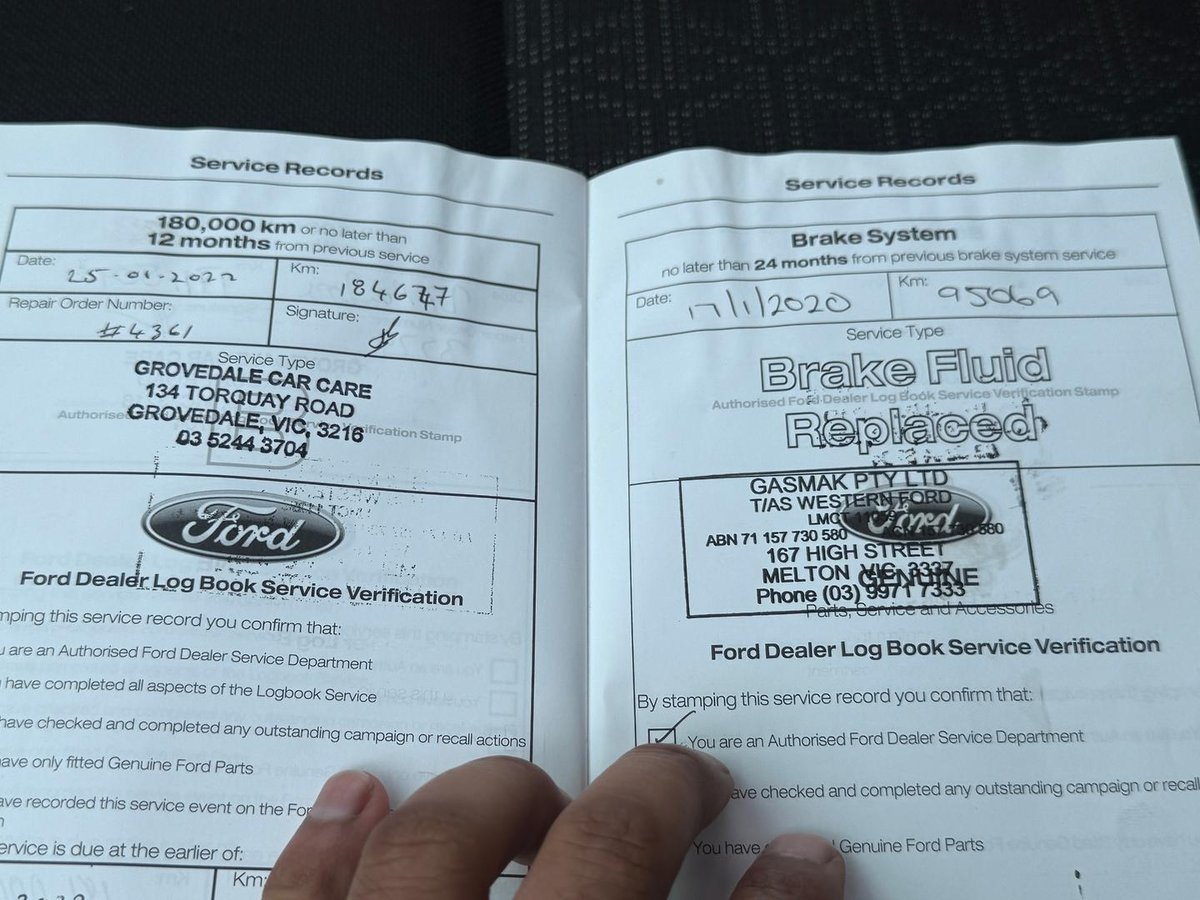 Service Records
180,000 km or no later than
12 months from previous service
Date: 25-01-2022
Km: 184677
Repair Order Number: #4361
Signature:
Service Type
GROVEDALE CAR CARE
134 TORQUAY ROAD
Authorised
Verification Stamp
GROVEDALE, VIC, 3216
03 5244 3704
B
Ford
Ford Dealer Log Book Service Verification
this service record you confirm that:
are an Authorised Ford Dealer Service Department
have completed all aspects of the Logbook Service
have checked and completed any outstanding campaign or recall actions
only fitted Genuine Ford Parts
recorded this service event on the
is due at the earlier of:
Km:
Service Records
Brake System
no later than 24 months from previous brake system service
Date: 17/1/2020
Km: 95069
Service Type
Brake Fluid
Authorised Ford Dealer Log Book Service Verification Stamp
Replaced
GASMAK PTY LTD
T/AS WESTERN FORD
LMCT
ABN 71 157 730 580
Ford
167 HIGH STREET
MELTON VIC. 3337
GENUINE
Phone (03) 9971 7333
Parts, Service and Accessories
Ford Dealer Log Book Service Verification
By stamping this service record you confirm that:
You are an Authorised Ford Dealer Service Department
checked and completed any outstanding campaign or recall
You have
Genuine Ford Parts